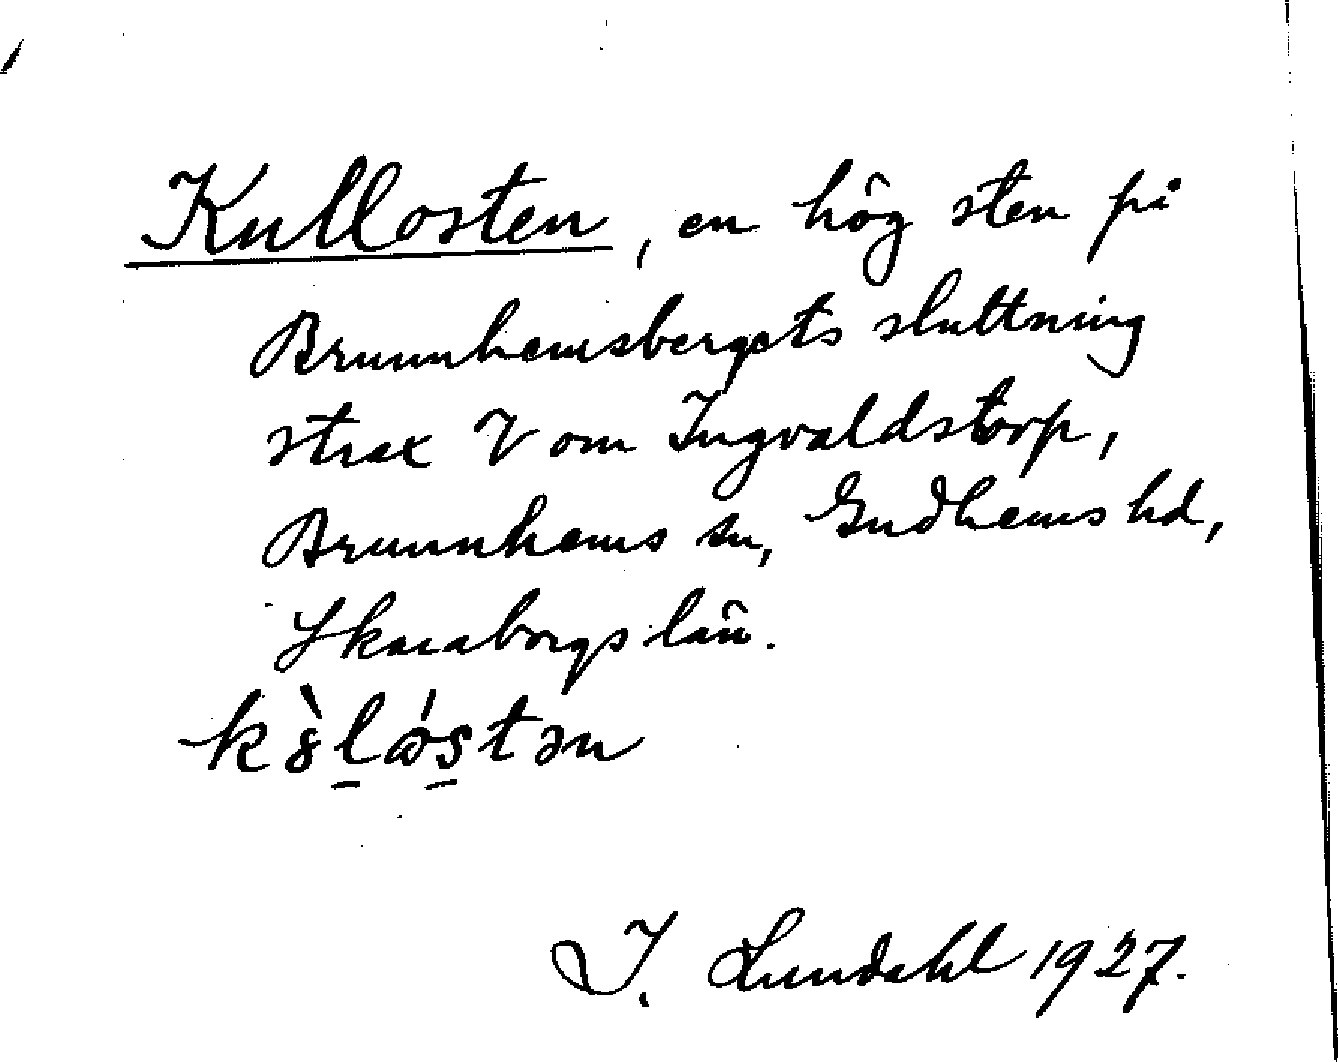 Kullosten, en hög sten på
Brunnhemsbergets sluttning
strax V om Ingvaldstorp,
Brunnhems sn, Gudhems hd,
Skaraborgs län.
k8̀l̠ɷ́s̠tən
I. Lundahl 1927.